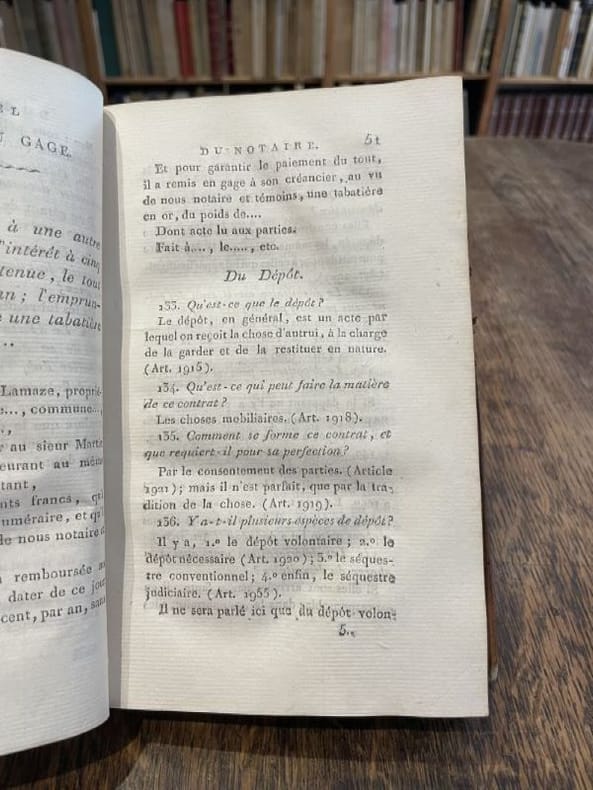 EL
U GAGE.
à une autre
l'intérêt à cinq
tenue, le tout
an; l'emprun-
e une tabatière
..
Lamaze, proprié-
e..., commune...,
,
r au sieur Martin
eurant au même
tant,
nts francs, qu'il
uméraire, et qu'il
de nous notaire et
a remboursée au
dater de ce jour
cent, par an, sans
DU NOTAIRE. 51
Et pour garantir le paiement du tout,
il a remis en gage à son créancier, au vu
de nous notaire et témoins, une tabatière
en or, du poids de....
Dont acte lu aux parties.
Fait à...., le....., etc.
Du Dépôt.
133. Qu'est-ce que le dépôt?
Le dépôt, en général, est un acte par
lequel on reçoit la chose d'autrui, à la charge
de la garder et de la restituer en nature.
(Art. 1915).
134. Qu'est-ce qui peut faire la matière
de ce contrat?
Les choses mobiliaires. (Art. 1918).
135. Comment se forme ce contrat, et
que requiert-il pour sa perfection?
Par le consentement des parties. (Article
1921); mais il n'est parfait, que par la tra-
dition de la chose. (Art. 1919).
136. Y a-t-il plusieurs espèces de dépôt?
Il y a, 1.º le dépôt volontaire; 2.º le
dépôt nécessaire (Art. 1920); 3.º le séques-
tre conventionnel; 4.º enfin, le séquestre
judiciaire. (Art. 1955).
Il ne sera parlé ici que du dépôt volon-
5.